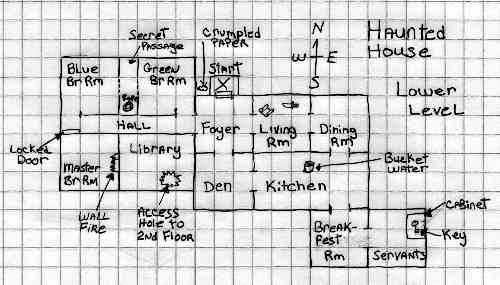 Haunted
House
Lower
Level
N
W
E
S
Secret
Passage
Crumpled
Paper
Start
Blue
Br Rm
Green
Br Rm
Hall
Foyer
Living
Rm
Dining
Rm
Locked
Door
Library
Master
Br Rm
Den
Kitchen
Bucket
Water
Wall
Fire
Access
Hole to
2nd Floor
Break-
fest
Rm
Servants
Cabinet
Key